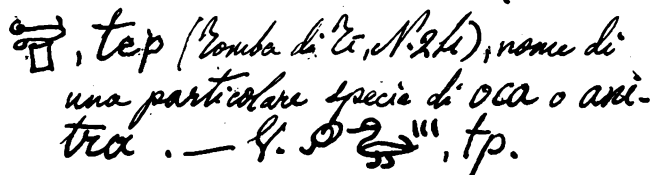 , tep (Tomba di Ti, N. 24), nome di
una particolare specie di oca o ani-
tra. — V. , tp.